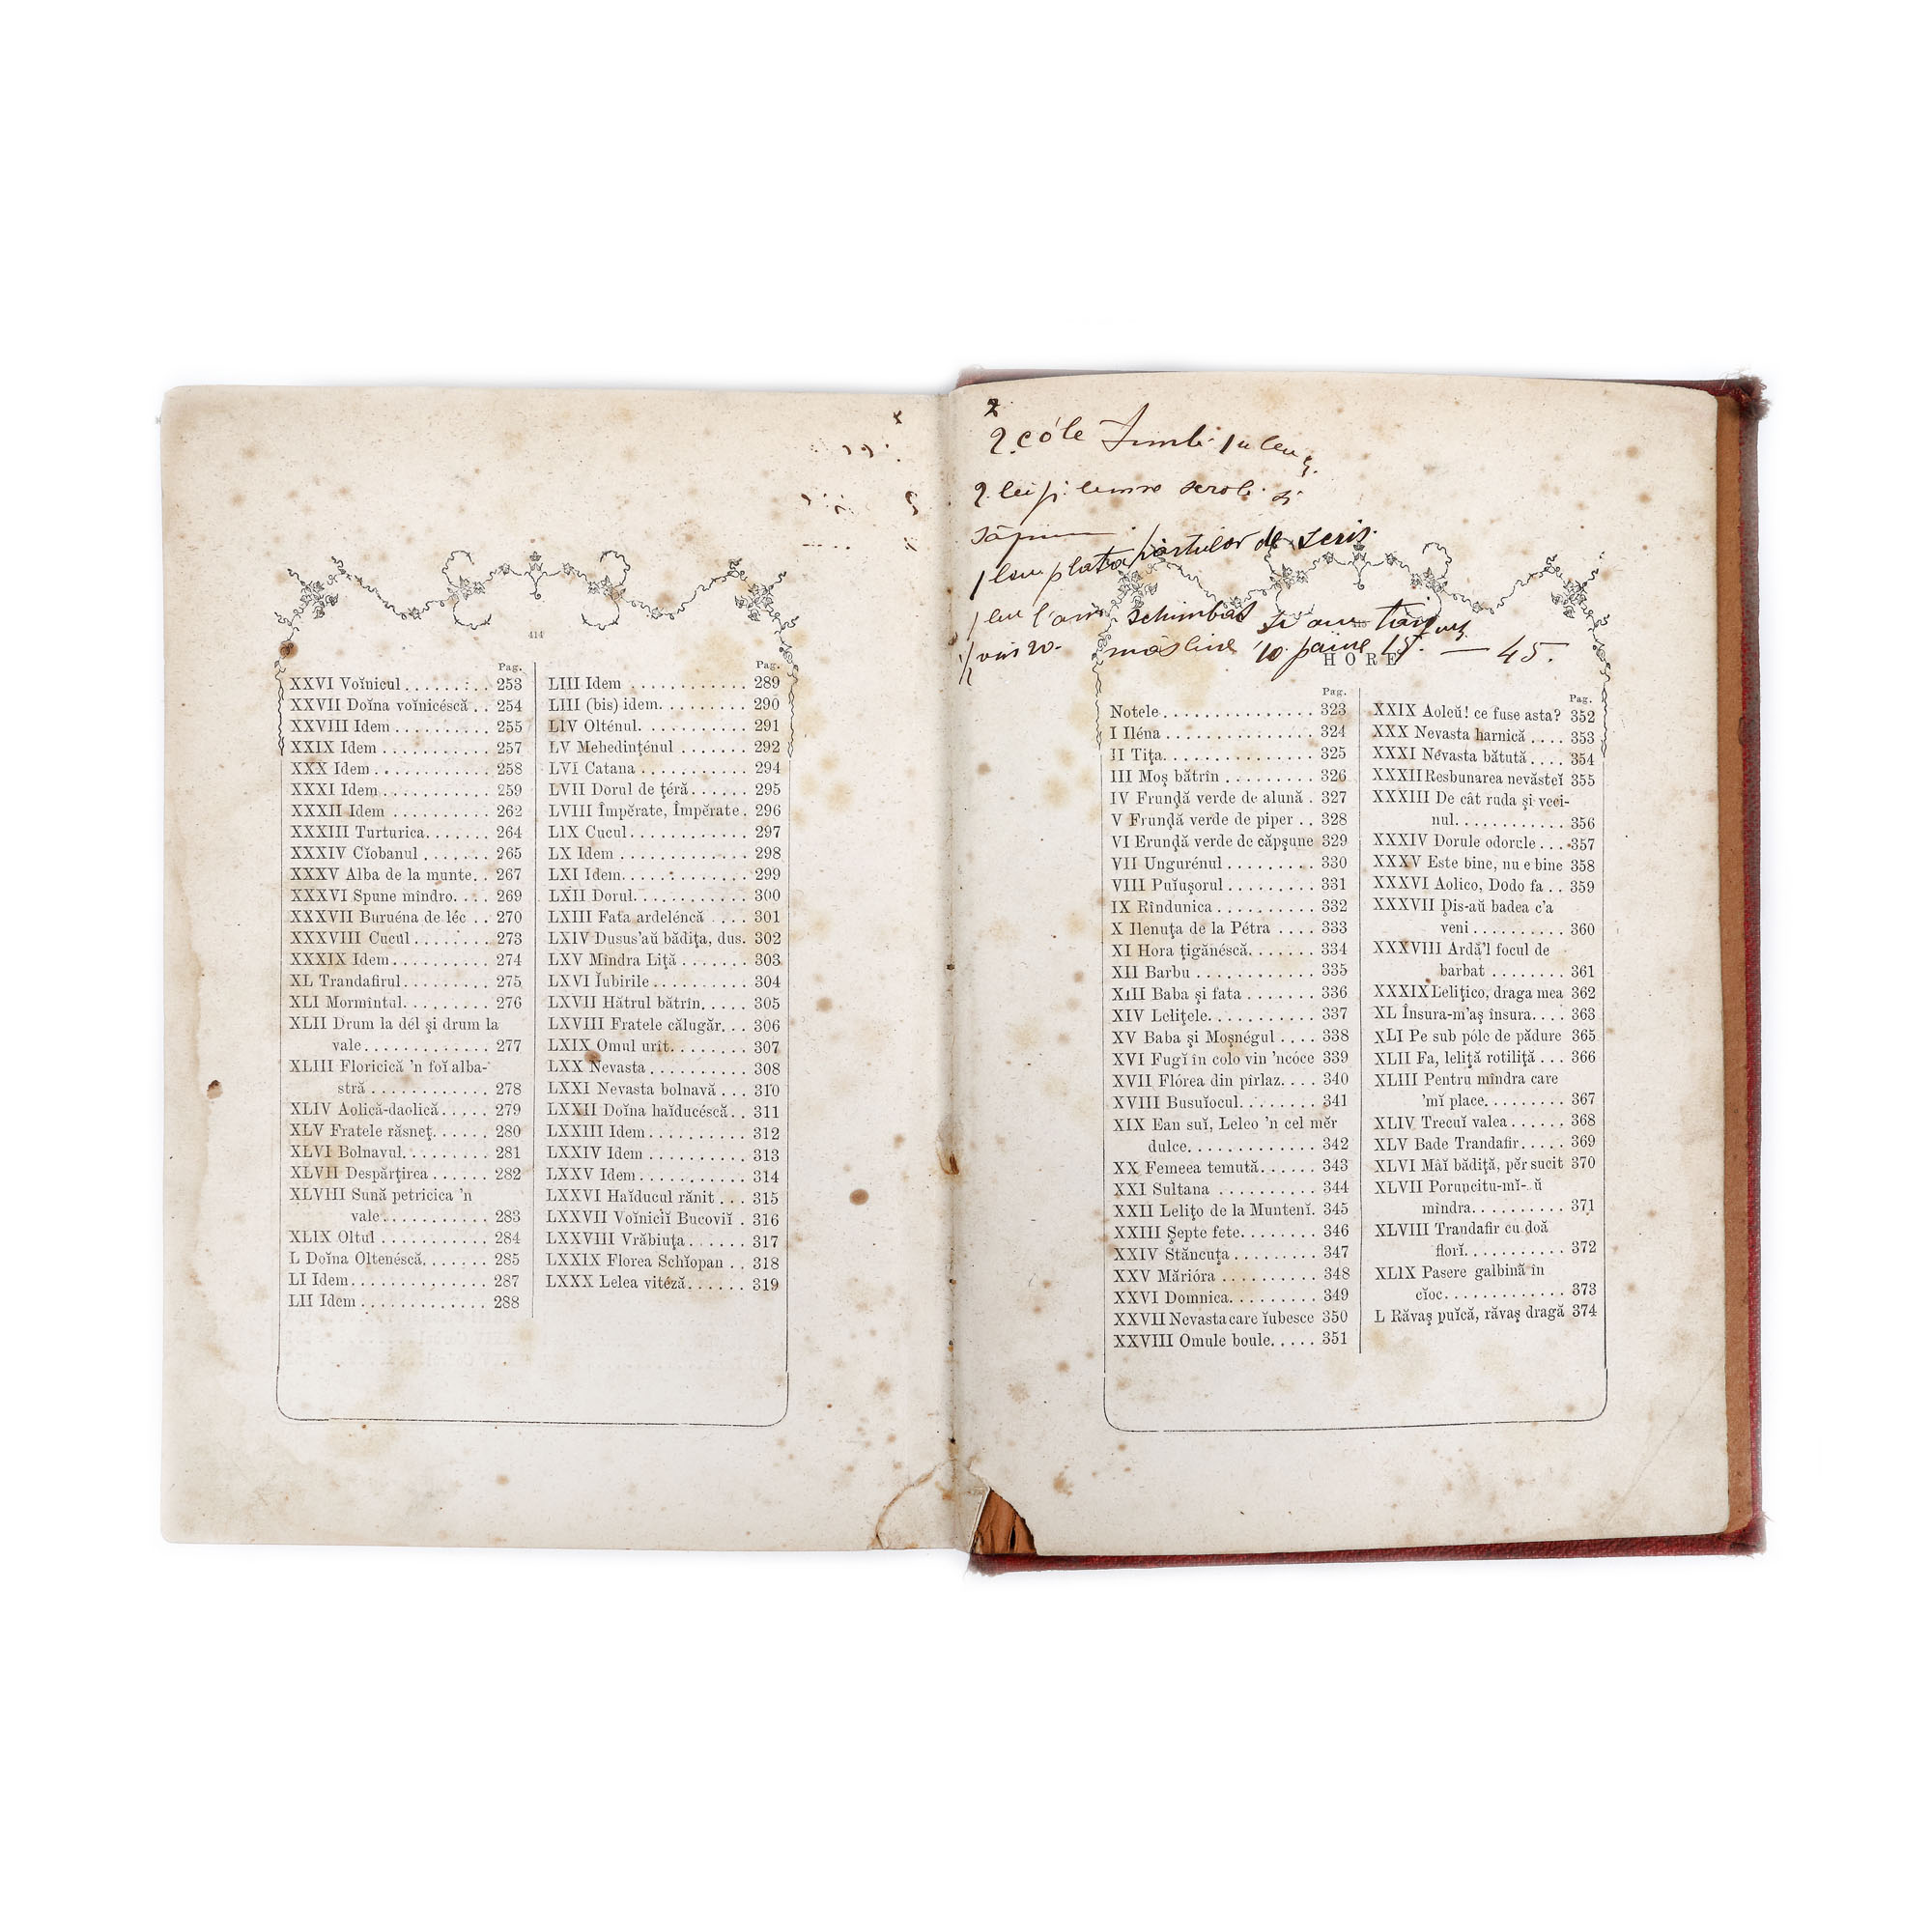 414
Pag.
XXVI Voĭnicul . . . . . . : . . 253
XXVII Doĭna voĭnicéscă . . 254
XXVIII Idem . . . . . . . . . . 255
XXIX Idem . . . . . . . . . . . 257
XXX Idem . . . . . . . . . . . . 258
XXXI Idem . . . . . . . . . . . 259
XXXII Idem . . . . . . . . . . 262
XXXIII Turturica. . . . . . . 264
XXXIV Cĭobanul . . . . . . . 265
XXXV Alba de la munte. . 267
XXXVI Spune mîndro. . . . 269
XXXVII Buruéna de léc . . 270
XXXVIII Cucul . . . . . . . . 273
XXXIX Idem . . . . . . . . . . 274
XL Trandafirul . . . . . . . . . 275
XLI Mormîntul. . . . . . . . . 276
XLII Drum la dél şi drum la
vale . . . . . . . . . . . . 277
XLIII Floricică 'n foĭ alba-
stră . . . . . . . . . . . . 278
XLIV Aolică-daolică . . . . . 279
XLV Fratele răsneţ. . . . . . 280
XLVI Bolnavul. . . . . . . . . 281
XLVII Despărţirea . . . . . . 282
XLVIII Sună petricica 'n
vale . . . . . . . . . . . 283
XLIX Oltul . . . . . . . . . . . 284
L Doĭna Oltenéscă. . . . . . . 285
LI Idem. . . . . . . . . . . . . . 287
LII Idem . . . . . . . . . . . . . 288
Pag.
LIII Idem . . . . . . . . . . . . 289
LIII (bis) idem. . . . . . . . . 290
LIV Olténul. . . . . . . . . . . 291
LV Mehedinţénul . . . . . . . 292
LVI Catana . . . . . . . . . . . 294
LVII Dorul de ţéră. . . . . . 295
LVIII Împĕrate, Împĕrate . 296
LIX Cucul . . . . . . . . . . . . 297
LX Idem . . . . . . . . . . . . . 298
LXI Idem. . . . . . . . . . . . . 299
LXII Dorul. . . . . . . . . . . . 300
LXIII Fata ardeléncă . . . . 301
LXIV Dusus'aŭ bădiţa, dus. 302
LXV Mîndra Liţă . . . . . . . 303
LXVI Ĭubirile . . . . . . . . . . 304
LXVII Hătrul bătrîn. . . . . 305
LXVIII Fratele călugăr. . . 306
LXIX Omul urît. . . . . . . . 307
LXX Nevasta . . . . . . . . . . 308
LXXI Nevasta bolnavă . . . 310
LXXII Doĭna haĭducéscă. . 311
LXXIII Idem . . . . . . . . . . 312
LXXIV Idem . . . . . . . . . . 313
LXXV Idem . . . . . . . . . . . 314
LXXVI Haĭducul rănit . . . 315
LXXVII Voĭnicĭĭ Bucoviĭ . 316
LXXVIII Vrăbiuţa . . . . . . 317
LXXIX Florea Schĭopan . . 318
LXXX Lelea vitéză. . . . . . 319
2 cóle
2 lei
săpun
de scris.
schimbat
măsline 10 pâine 15. — 45.
HORE
Pag.
Notele . . . . . . . . . . . . . . . 323
I Iléna . . . . . . . . . . . . . . . 324
II Tiţa. . . . . . . . . . . . . . . . 325
III Moş bătrîn . . . . . . . . . 326
IV Frunḑă verde de alună . 327
V Frunḑă verde de piper . . 328
VI Erunḑă verde de căpşune 329
VII Ungurénul . . . . . . . . . 330
VIII Puĭuşorul . . . . . . . . . 331
IX Rîndunica . . . . . . . . . . 332
X Ilenuţa de la Pétra . . . . 333
XI Hora ţigănéscă. . . . . . . 334
XII Barbu . . . . . . . . . . . . 335
XIII Baba şi fata . . . . . . . 336
XIV Leliţele. . . . . . . . . . . 337
XV Baba şi Moşnégul . . . . 338
XVI Fugĭ în colo vin 'ncóce 339
XVII Flórea din pîrlaz. . . . 340
XVIII Busuĭocul. . . . . . . . 341
XIX Ean suĭ, Leleo 'n cel mĕr
dulce. . . . . . . . . . . . 342
XX Femeea temută. . . . . . 343
XXI Sultana . . . . . . . . . . 344
XXII Leliţo de la Muntenĭ. 345
XXIII Şepte fete. . . . . . . . 346
XXIV Stăncuţa . . . . . . . . . 347
XXV Mărióra . . . . . . . . . . 348
XXVI Domnica. . . . . . . . . 349
XXVII Nevasta care ĭubesce 350
XXVIII Omule boule. . . . . 351
Pag.
XXIX Aoleŭ! ce fuse asta? 352
XXX Nevasta harnică . . . . 353
XXXI Nevasta bătută . . . . 354
XXXII Resbunarea nevăsteĭ 355
XXXIII De cât ruda şi veci-
nul. . . . . . . . . . . . 356
XXXIV Dorule odorule . . . 357
XXXV Este bine, nu e bine 358
XXXVI Aolico, Dodo fa . . 359
XXXVII Ḑis-aŭ badea c'a
veni . . . . . . . . . . 360
XXXVIII Ardă'l focul de
barbat . . . . . . . . 361
XXXIX Leliţico, draga mea 362
XL Însura-m'aş însura. . . . 363
XLI Pe sub póle de pădure 365
XLII Fa, leliţă rotiliţă . . . 366
XLIII Pentru mîndra care
'mĭ place. . . . . . . . 367
XLIV Trecuĭ valea . . . . . . 368
XLV Bade Trandafir. . . . . 369
XLVI Măĭ bădiţă, pĕr sucit 370
XLVII Poruncitu-mĭ- ŭ
mîndra. . . . . . . . . . 371
XLVIII Trandafir cu doă
florĭ. . . . . . . . . . . 372
XLIX Pasere galbină în
cĭoc. . . . . . . . . . . . . 373
L Răvaş puĭcă, răvaş dragă 374